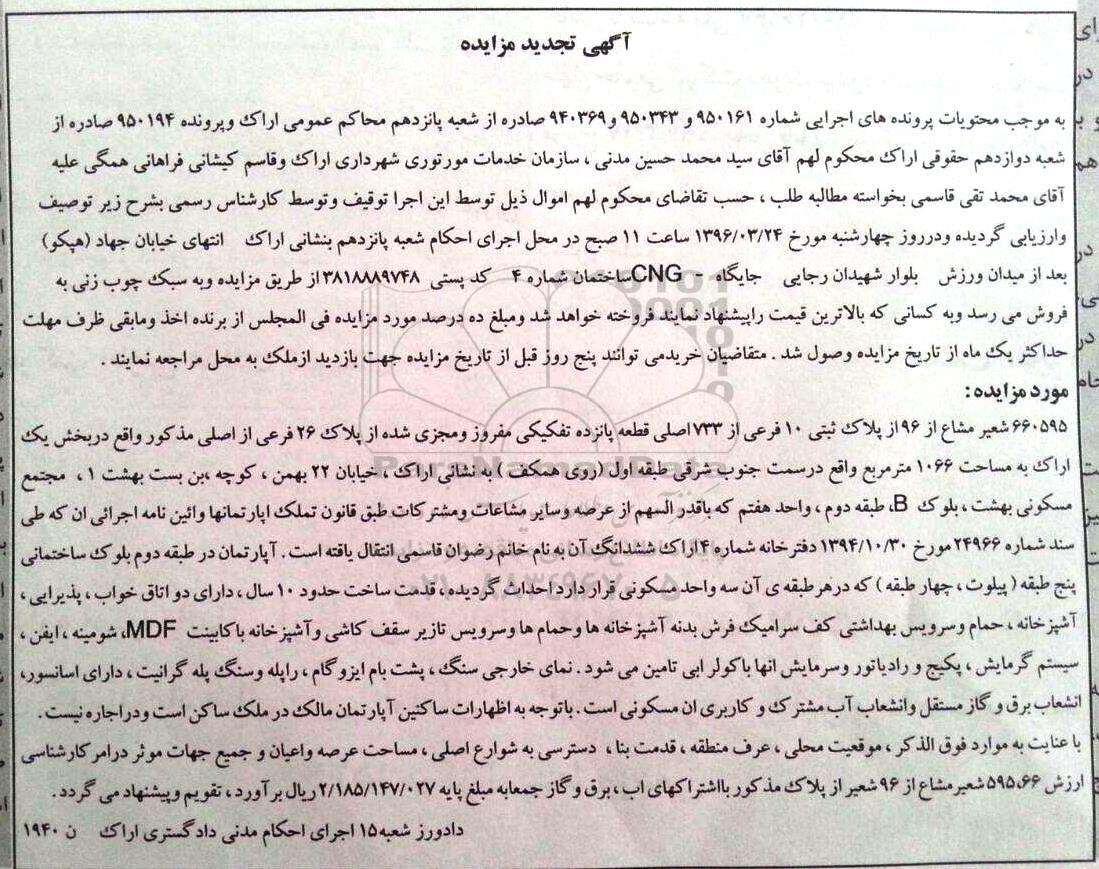 آگهی تجدید مزایده
به موجب محتویات پرونده های اجرایی شماره ۹۵۰۱۶۱و ۹۵۰۳۴۳ و۹۴۰۳۶۹ صادره از شعبه پانزدهم محاکم عمومی اراک وپرونده ۹۵۰۱۹۴ صادره از
شعبه دوازدهم حقوقی اراک محکوم لهم آقای سید محمد حسین مدنی ، سازمان خدمات موتوری شهرداری اراک وقاسم کیشانی فراهانی همگی علیه
آقای محمد تقی قاسمی بخواسته مطالبه طلب ، حسب تقاضای محکوم لهم اموال ذیل توسط این اجرا توقیف وتوسط کارشناس رسمی بشرح زیر توصیف
وارزیابی گردیده ودرروز چهارشنبه مورخ ۱۳۹۶/۰۳/۲۴ ساعت ۱۱ صبح در محل اجرای احکام شعبه پانزدهم بنشانی اراک انتهای خیابان جهاد (هپکو)
بعد از میدان ورزش بلوار شهیدان رجایی جایگاه - CNGساختمان شماره ۴ کد پستی ۳۸۱۸۸۸۹۷۴۸ از طریق مزایده وبه سبک چوب زنی به
فروش می رسد وبه کسانی که بالاترین قیمت راپیشنهاد نمایند فروخته خواهد شد ومبلغ ده درصد مورد مزایده فی المجلس از برنده اخذ ومابقی ظرف مهلت
حداکثر یک ماه از تاریخ مزایده وصول شد . متقاضیان خریدمی توانند پنج روز قبل از تاریخ مزایده جهت بازدید ازملک به محل مراجعه نمایند .
مورد مزایده :
۶۶۰۵۹۵ شعیر مشاع از ۹۶ از پلاک ثبتی ۱۰ فرعی از ۷۳۳اصلی قطعه پانزده تفکیکی مفروز ومجزی شده از پلاک ۲۶ فرعی از اصلی مذکور واقع دربخش یک
اراک به مساحت ۱۰۶۶ مترمربع واقع درسمت جنوب شرقی طبقه اول (روی همکف ) به نشانی اراک ، خیابان ۲۲ بهمن ، کوچه ،بن بست بهشت ۱ ، مجتمع
مسکونی بهشت ، بلوک B، طبقه دوم ، واحد هفتم که باقدر السهم از عرصه وسایر مشاعات ومشترکات طبق قانون تملک اپارتمانها وائین نامه اجرائی ان که طی
سند شماره ۲۴۹۶۶ مورخ ۱۳۹۴/۱۰/۳۰ دفترخانه شماره ۴اراک ششدانگ آن به نام خانم رضوان قاسمی انتقال یافته است . آپارتمان در طبقه دوم بلوک ساختمانی
پنج طبقه ( پیلوت ، چهار طبقه ) که درهرطبقه ی آن سه واحد مسکونی قرار دارد احداث گردیده ، قدمت ساخت حدود ۱۰ سال ، دارای دو اتاق خواب ، پذیرایی ،
آشپزخانه ، حمام وسرویس بهداشتی کف سرامیک فرش بدنه آشپزخانه ها وحمام ها وسرویس تازیر سقف کاشی وآشپزخانه باکابینت MDF، شومینه ، ایفن ،
سیستم گرمایش ، پکیج و رادیاتور وسرمایش انها باکولر ابی تامین می شود . نمای خارجی سنگ ، پشت بام ایزوگام ، راپله وسنگ پله گرانیت ، دارای اسانسور،
انشعاب برق و گاز مستقل وانشعاب آب مشترک و کاربری ان مسکونی است . باتوجه به اظهارات ساکنین آپارتمان مالک در ملک ساکن است ودراجاره نیست .
با عنایت به موارد فوق الذکر ، موقعیت محلی ، عرف منطقه ، قدمت بنا ، دسترسی به شوارع اصلی ، مساحت عرصه واعیان و جمیع جهات موثر درامر کارشناسی
ارزش ۵۹۵،۶۶ شعیرمشاع از ۹۶ شعیر از پلاک مذکور بااشتراکهای اب ، برق و گاز جمعابه مبلغ پایه ۲/۱۸۵/۱۴۷/۰۲۷ ریال برآورد ، تقویم وپیشنهاد می گردد .
دادورز شعبه۱۵ اجرای احکام مدنی دادگستری اراک ن ۱۹۴۰